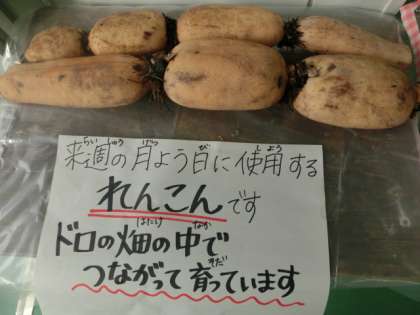 来週の月よう日に使用する
れんこんです
ドロの畑の中で
つながって育っています